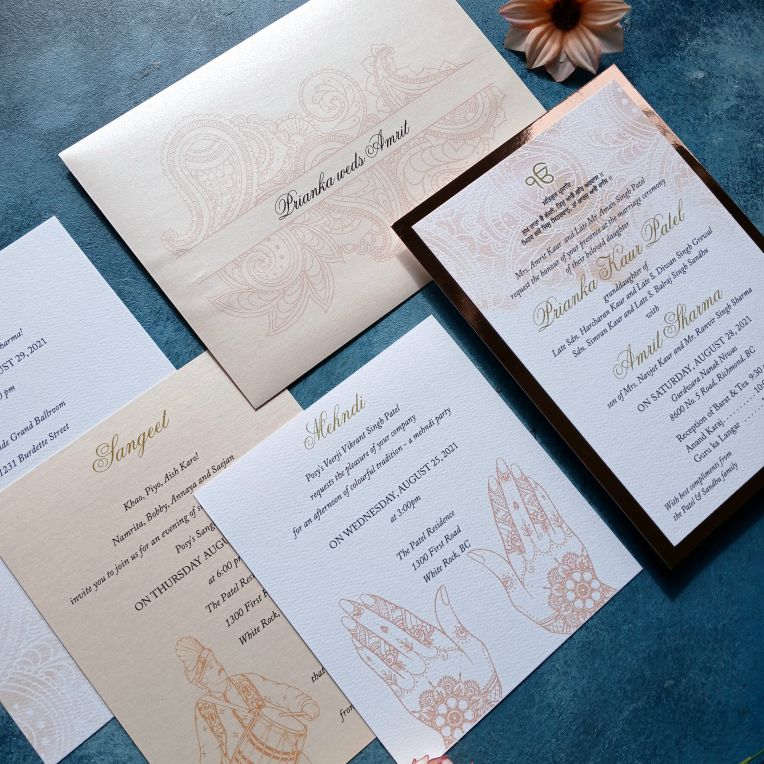 Prianka weds Amrit
ੴ
Mrs. Amrit Kaur and Late Mr. Aman Singh Patel
request the honour of your presence at the marriage ceremony
of their beloved daughter
Prianka Kaur Patel
granddaughter of
Late Sdn. Harcharan Kaur and Late S. Singh Grewal
Sdn. Simran Kaur and Late S. Balraj Singh Sandhu
with
Amrit Sharma
son of Mrs. Navjot Kaur and Mr. Ranvir Singh Sharma
ON SATURDAY, AUGUST 28, 2021
Gurdwara Nanak Niwas
8600 No. 5 Road, Richmond, BC
Reception of Barat & Tea 9:30
Anand Karaj
Guru ka Langar
With best compliments from
the Patel & Sandhu family
Mehndi
Posy's Veerji Vikrant Singh Patel
requests the pleasure of your company
for an afternoon of colourful tradition – a mehndi party
ON WEDNESDAY, AUGUST 25, 2021
at 3:00pm
The Patel Residence
1300 First Road
White Rock, BC
Sangeet
Khao, Piyo, Aish Karo!
Namrita, Bobby, Annaya and Saejan
invite you to join us for an evening of
Posy's Sang
ON THURSDAY AUGUS
at 6:00 p
The Patel Resi
1300 First R
White Rock,
that
from
arma!
GUST 29, 2021
pm
ide Grand Ballroom
1231 Burdette Street